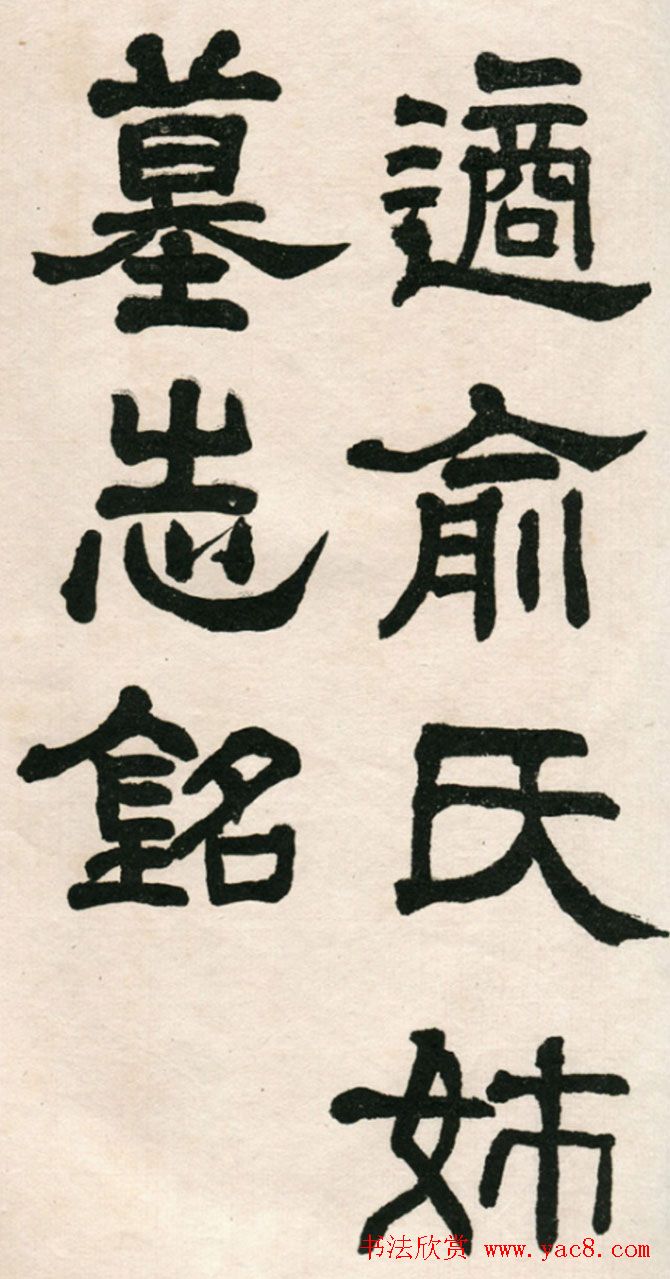 適俞氏姊
墓志銘
书法欣赏 www.yac8.com